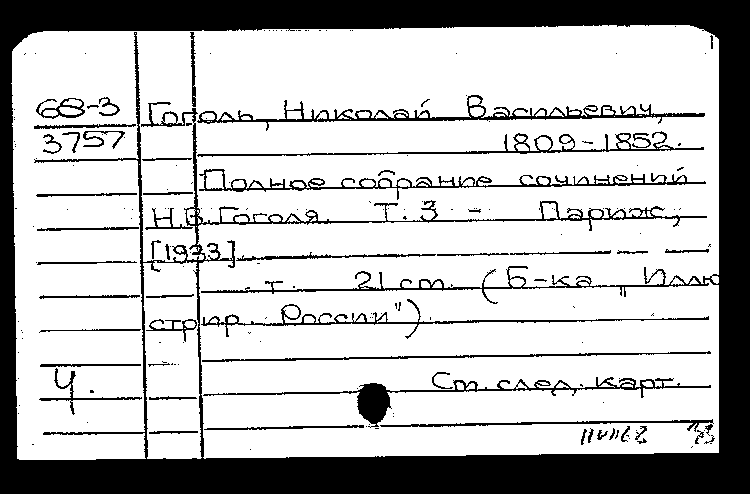 68-3 Гоголь, Николай Васильевич,
3757 1809-1852.
Полное собрание сочинений
Н.В. Гоголя. Т. 3 - Париж,
[1933]
- т. 21 cm. (Б-ка „Иллю
стрир. России")
Ч. Ст. след. карт.